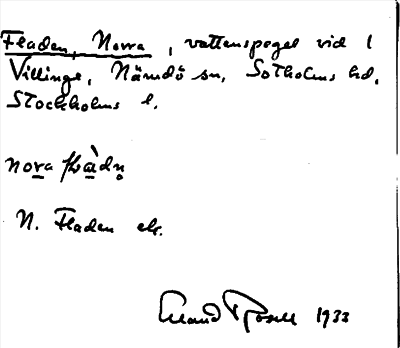 Fladen, Norra, vattenspegel vid l
Villinge, Nämdö sn, Sotholms hd,
Stockholms l.
nora flàdn̥
N. Fladen ek.
Erland Rosell 1933